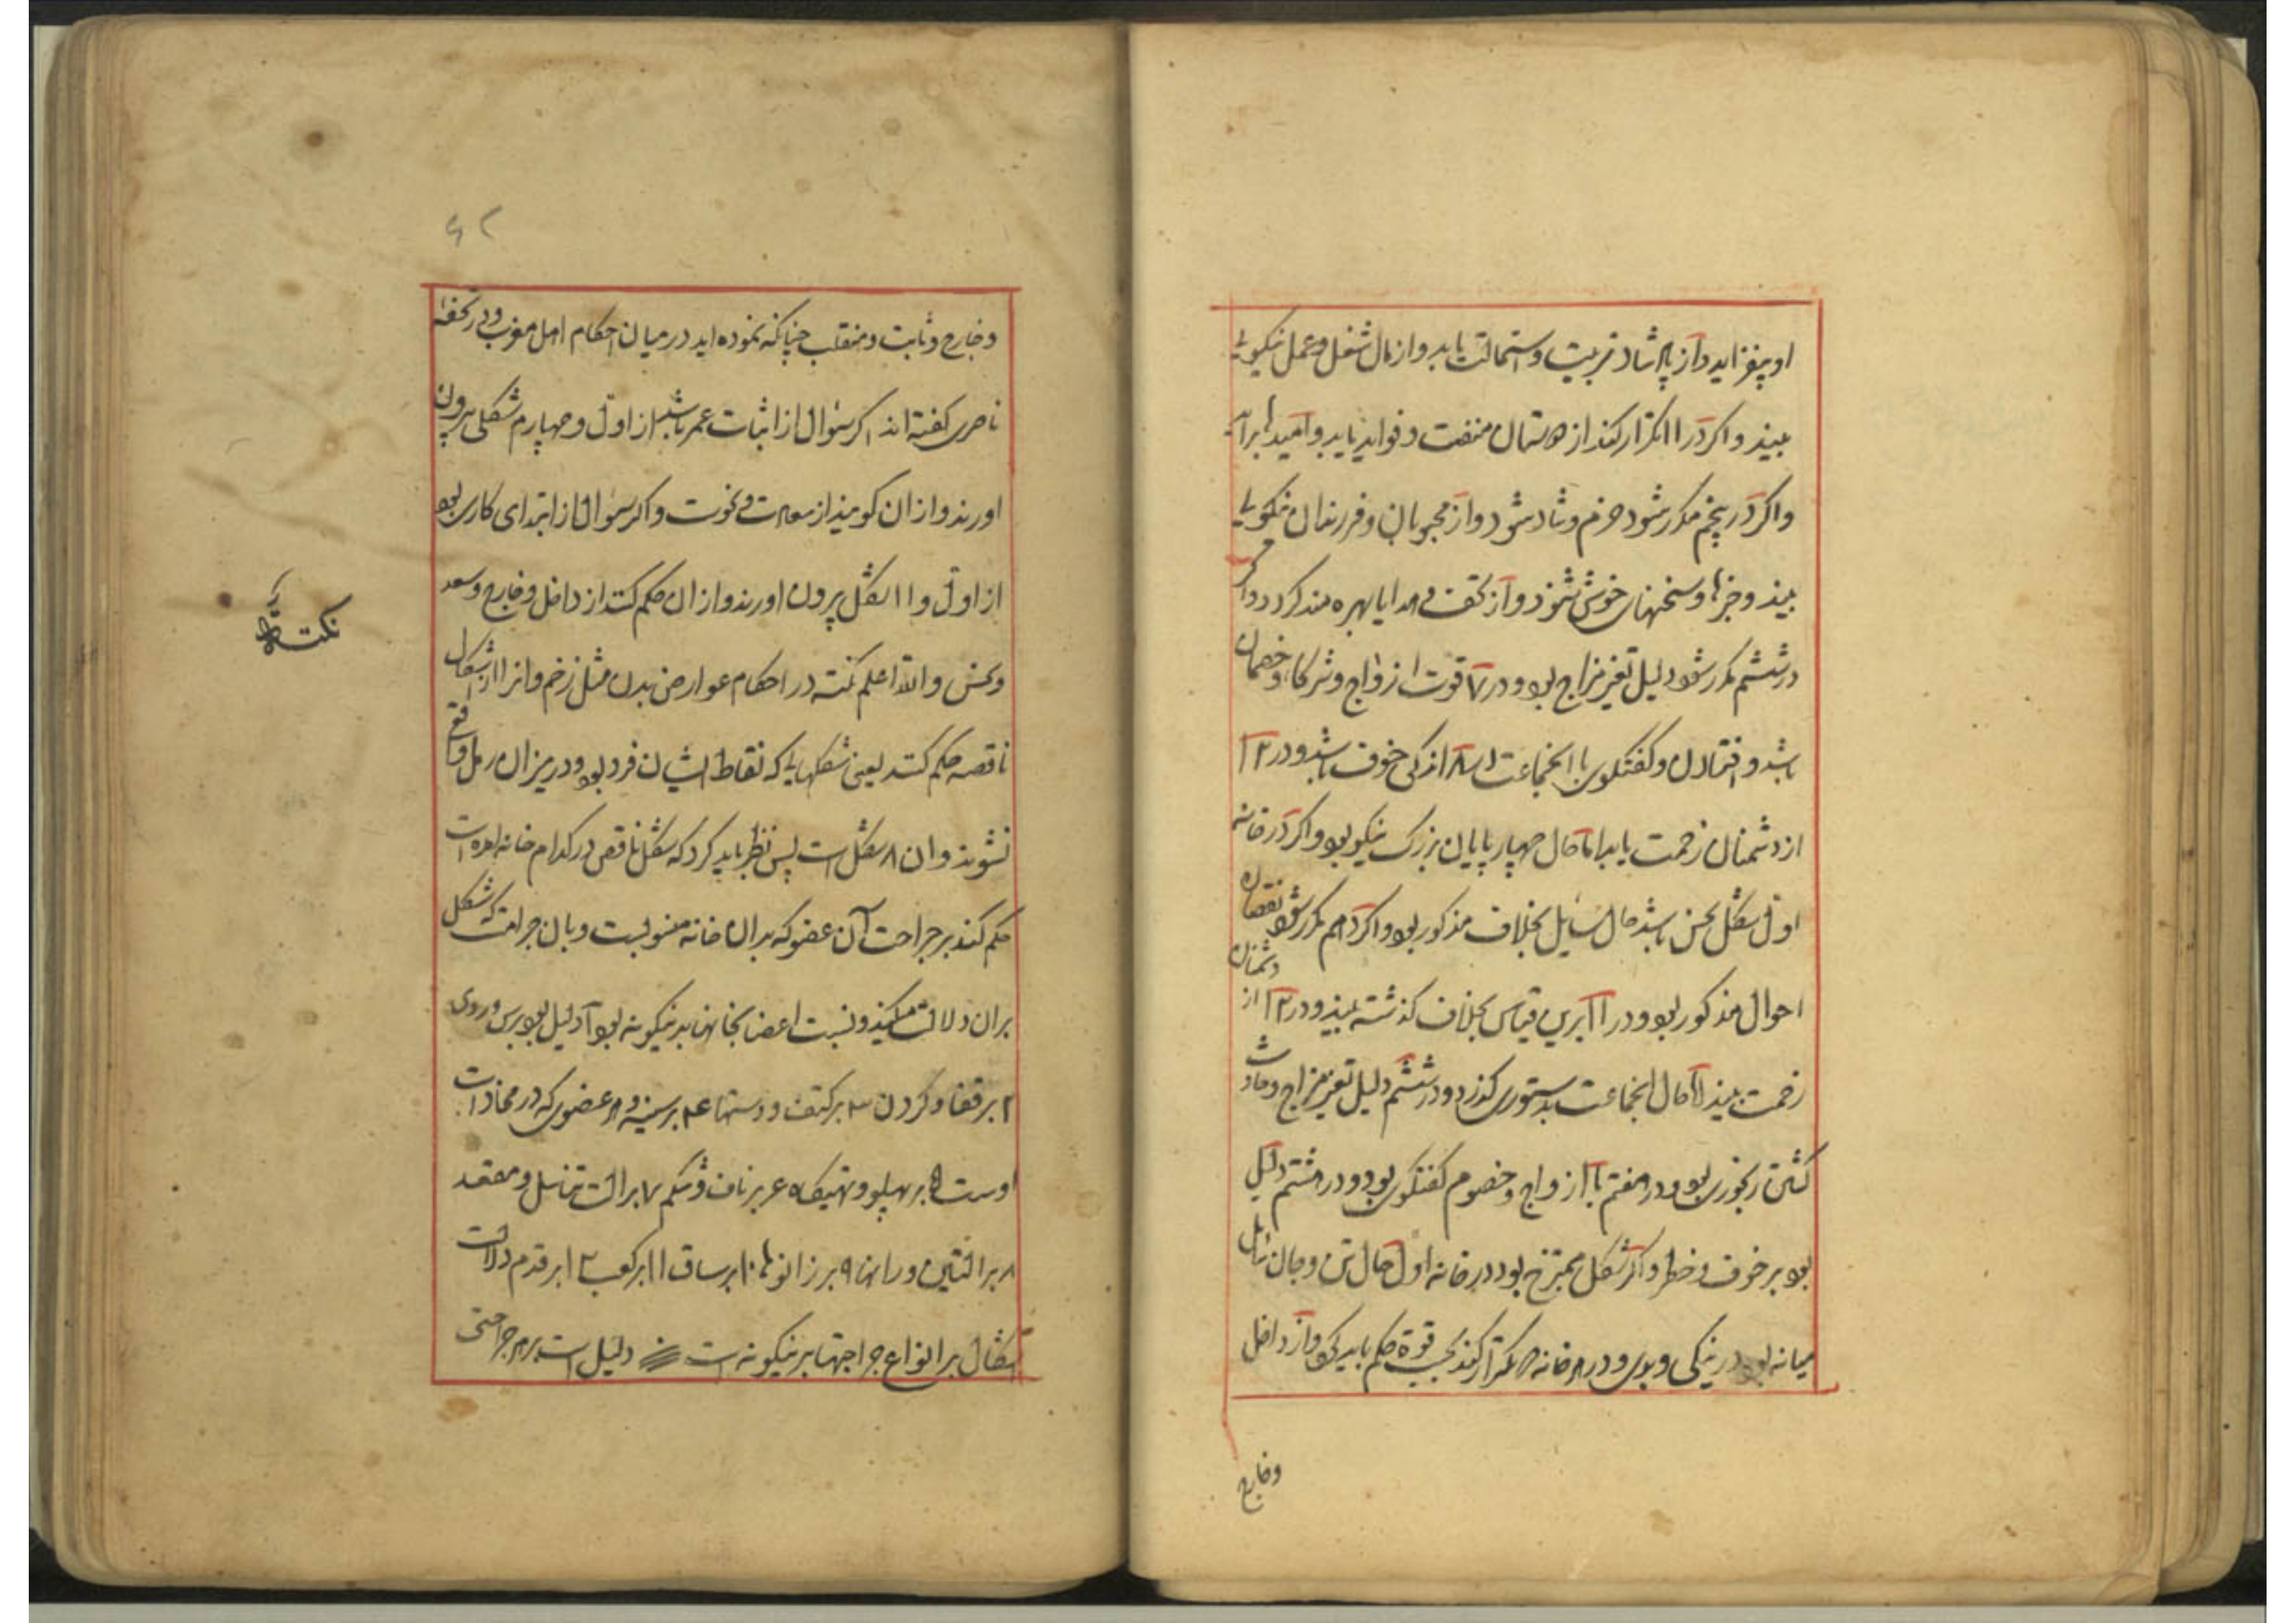 او بیفزاید و از پادشاه تربیت و استمالت یابد و از مال شغل و عمل نیکویی
بیند و اگر در ۱۱ تکرار کند از دوستان منفعت و فواید یابد و امیدها برآید
و اگر در پنجم مکرر شود خرم و شاد شود و از محبوبان و فرزندان نیکویی
بیند و خبرها و سخنهای خوش شنود و از تحف و هدایا بهره مند گردد و اگر
در ششم مکرر شود دلیل تغیر مزاج بود و در ۷ قوت ازواج و شرکا و خصمان
باشد و افتادن و گفتگوی با انجماعت و در ۸ اندکی خوف باشد و در ۱۲
از دشمنان زحمت یابد اما حال چهارپایان بزرگ نیکو بود و اگر در خانه
اول شکل نحس باشد حال سایل بخلاف مذکور بود و اگر دهم مکرر شود نقصان
احوال مذکور بود و در ۱۱ برین قیاس بخلاف گذشته بیند و در ۱۲ از دشمنان
زحمت بیند اما حال انجماعت بدستوری گذرد و در ششم دلیل تغیر مزاج و حادث
گشتن رنجوری بود و در هفتم با ازواج و خصوم گفتگوی بود و در هشتم دلیل
بود بر خوف و خطر و اگر شکل ممتزج بود در خانه اول حال تن و جان سایل
میانه بود در نیکی و بدی و در هر خانه که تکرار کند بحسب قوة حکم باید کرد و از داخل
و خارج
۶۲
و خارج و ثابت و منقلب چنانکه نموده اید در میان احکام اهل مغرب و در تحفهٔ
ناصری گفته اند اگر سؤال از اثبات عمر باشد از اول و چهارم شکلی بیرون
اورند و از ان گویند از سعادت و نحوست و اگر سؤال از ابتدای کاری بود
از اول و ۱۱ شکل بیرون اورند و از ان حکم کنند از داخل و خارج و سعد
و نحس و الله اعلم نکته در احکام عوارض بدن مثل زخم و انرا از اشکال
ناقصه حکم کنند یعنی شکلهایی که نقاط ایشان فرد بود و در میزان رمل واقع
نشوند و ان ۸ شکل است پس نظر باید کرد که شکل ناقص در کدام خانه امده است
حکم کند بر جراحت آن عضو که بدان خانه منسوبست و بان جراحت که شکل
بران دلالت میکند و نسبت اعضا بخانها بدینگونه بود ا دلیل بود بر سر و روی
۲ بر قفا و گردن ۳ بر کتف و دستها ۴ بر سینه و هر عضوی که در محاذات
اوست ۵ بر پهلو و تهیگاه ۶ بر ناف و شکم ۷ بر الت تناسل و مقعد
۸ بر الیتین و رانها ۹ بر زانوها ۱۰ بر ساق ۱۱ بر کعب ۱۲ بر قدم دلالت
اشکال بر انواع جراحتها برینگونه است دلیل است بر هر جراحتی
نکته